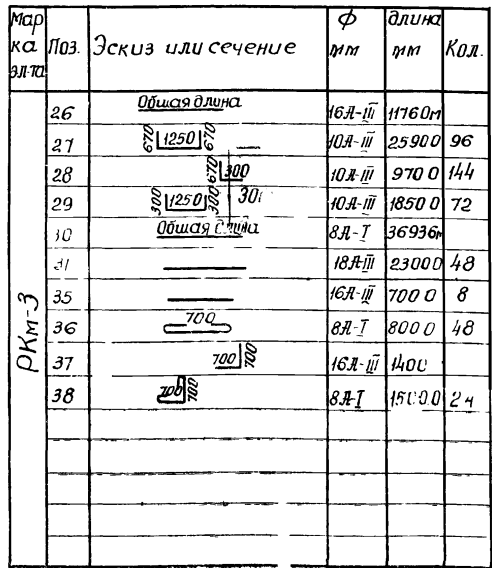 Мар ка эл-та | Поз. | Эскиз или сечение | ф мм | длина мм | Кол.
РКм-3
26 | Общая длина | 16А-III | 11760м
27 | 670 1250 670 | 10А-III | 25900 | 96
28 | 670 300 | 10А-III | 9700 | 144
29 | 300 1250 300 30 | 10А-III | 18500 | 72
30 | Общая длина | 8А-I | 36936м
31 | 18А-III | 23000 | 48
35 | 16А-III | 7000 | 8
36 | 700 | 8А-I | 8000 | 48
37 | 700 700 | 16А-III | 1400
38 | 700 700 | 8А-I | 15000 | 24